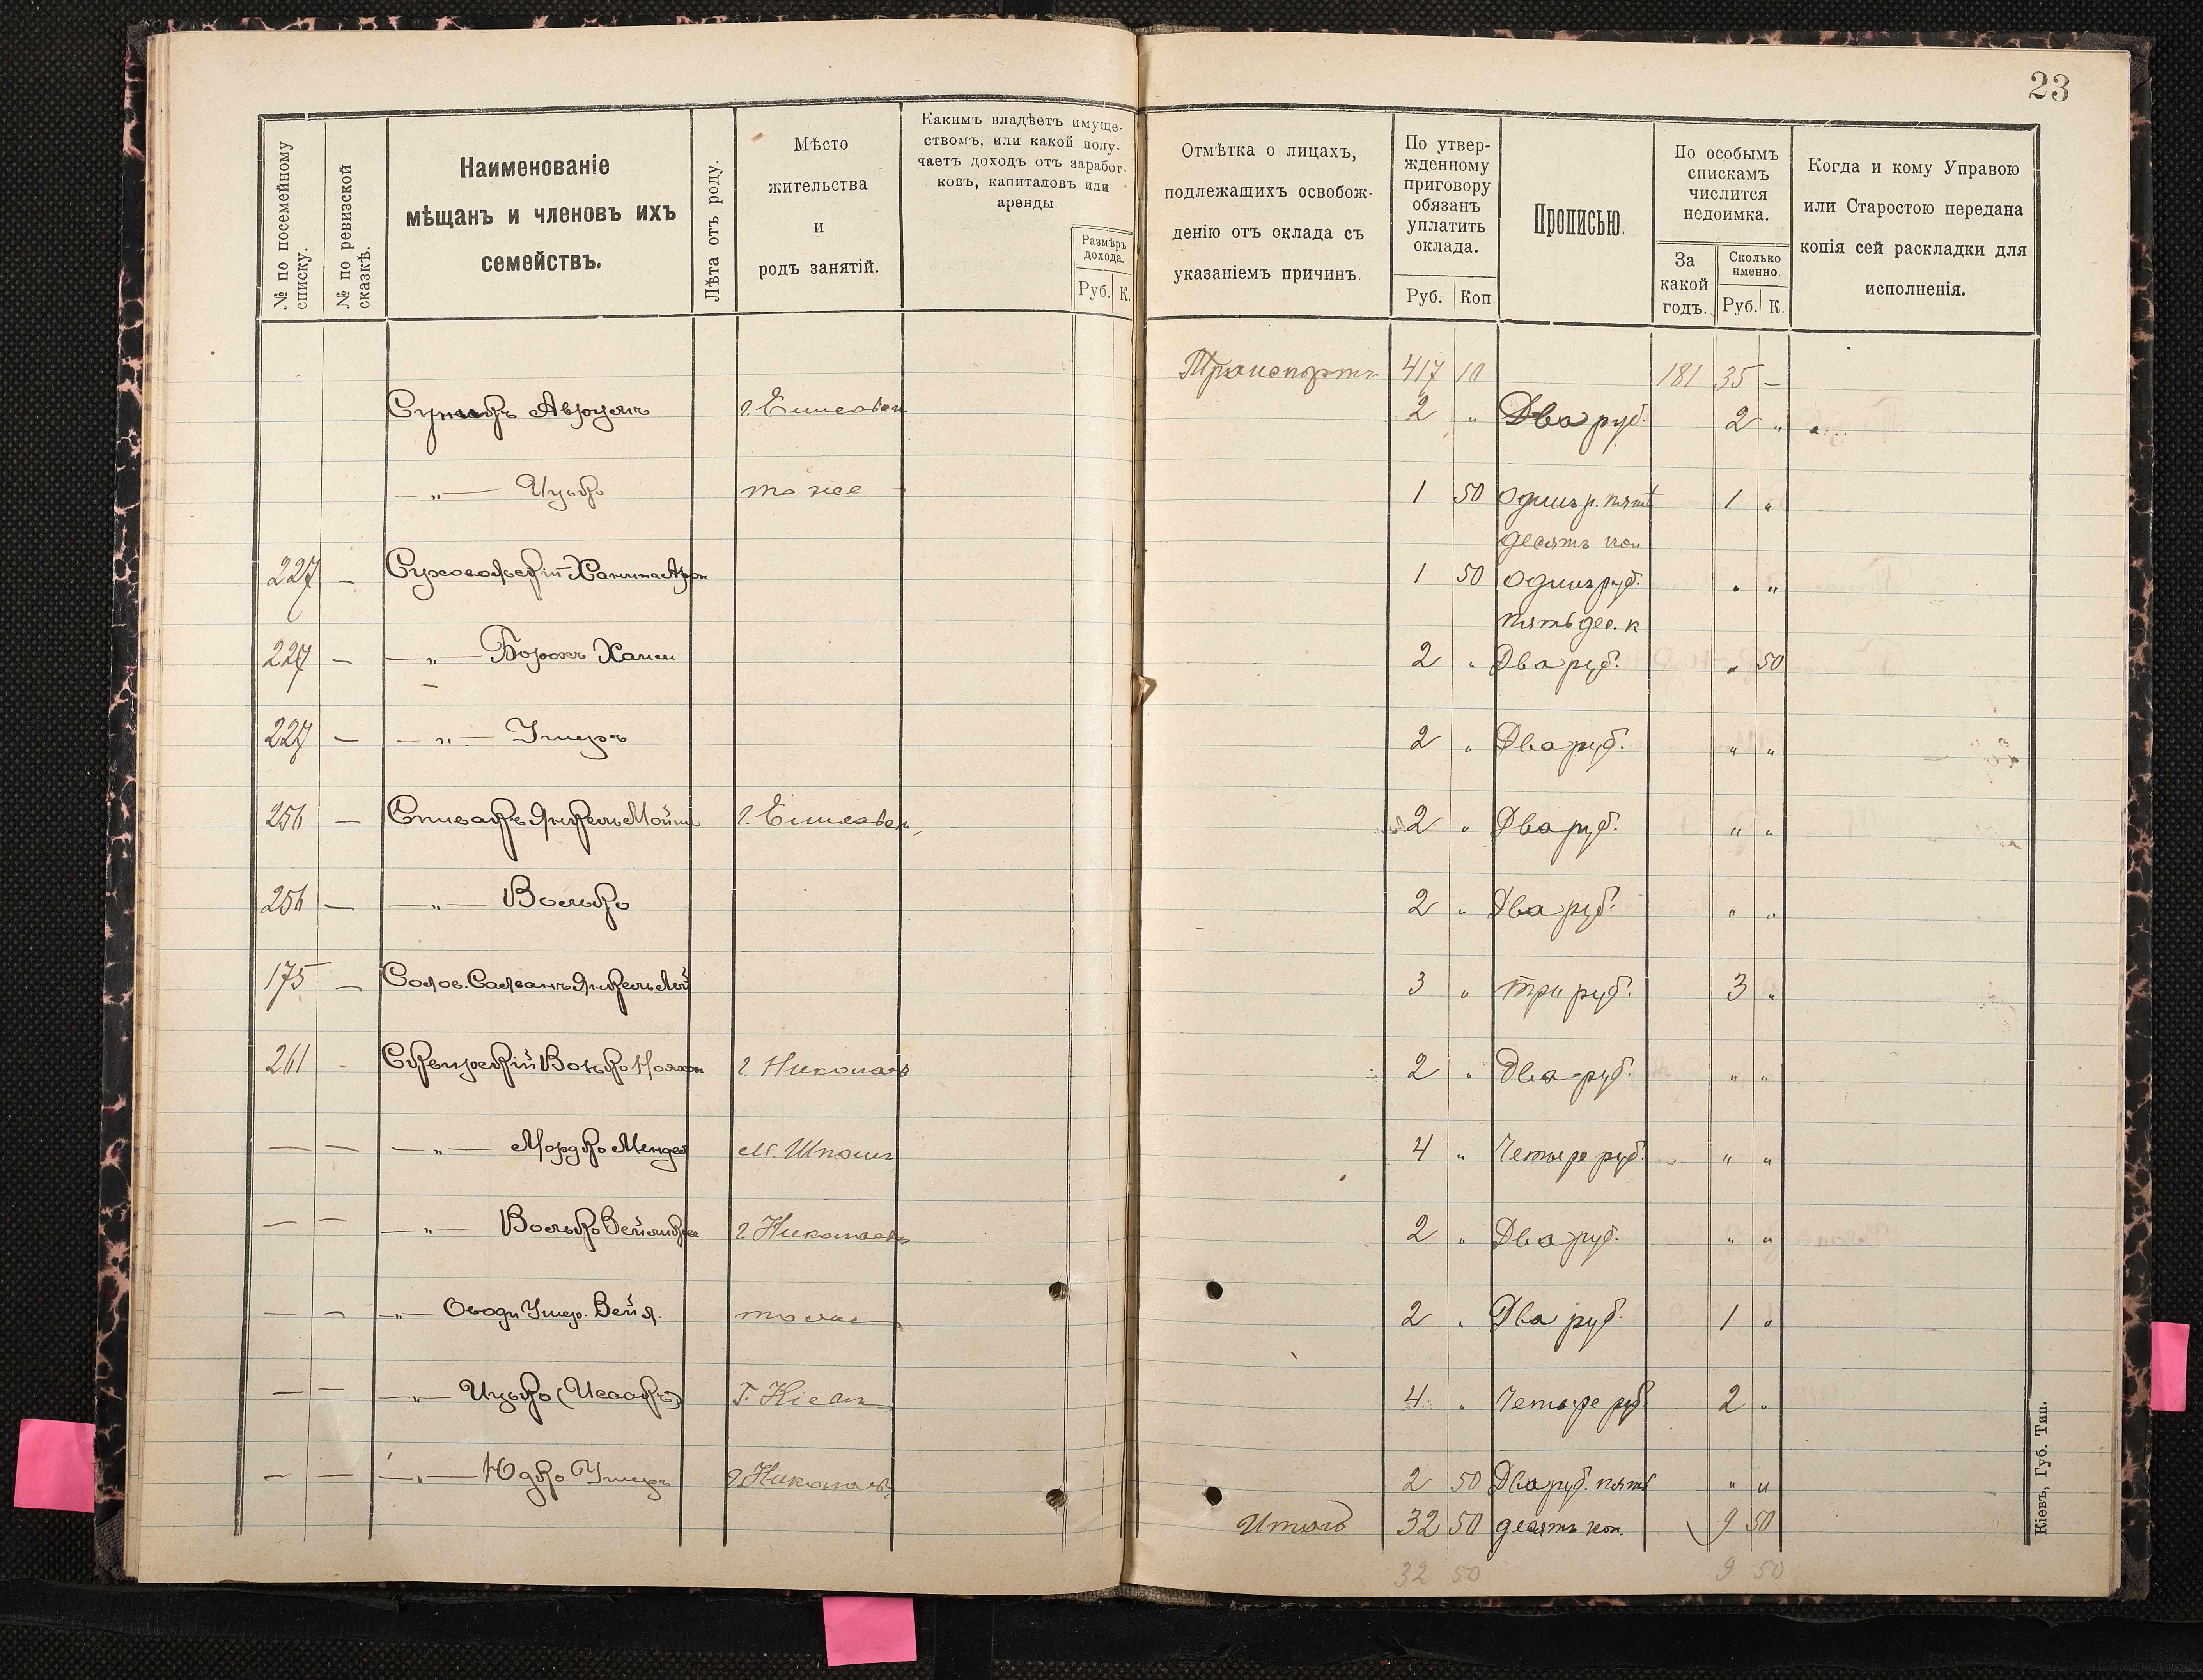 23
№ по посемейному списку.
№ по ревизской сказкѣ.
Наименованіе
мѣщанъ и членовъ ихъ
семействъ.
Лѣта отъ роду.
Мѣсто
жительства
и
родъ занятій.
Какимъ владѣетъ имуще-
ствомъ, или какой полу-
чаетъ доходъ отъ заработ-
ковъ, капиталовъ или
аренды
Размѣръ
дохода.
Руб. К.
Отмѣтка о лицахъ,
подлежащихъ освобож-
денію отъ оклада съ
указаніемъ причинъ.
По утвер-
жденному
приговору
обязанъ
уплатить
оклада.
Руб. Коп.
Прописью.
По особымъ
спискамъ
числится
недоимка.
За
какой
годъ.
Сколько
именно.
Руб. К.
Когда и кому Управою
или Старостою передана
копія сей раскладки для
исполненія.
Транспортъ 417 10 181 35 —
Аврумъ г. Елисавет 2 " Два руб. 2 "
— " — Ицько то же 1 50 Одинъ р. пять 1 "
десять коп
227 — Ханина Арон 1 50 Одинъ руб. " "
пятьдес. к
227 — — " — Борохъ Хаим 2 " Два руб. " 50
227 — — " — Ушеръ 2 " Два руб. " "
256 — Спивакъ Янкель Мошк г. Елисавет 2 " Два руб. " "
256 — — " — Волько 2 " Два руб. " "
175 — Янкель 3 " Три руб. 3 "
261 - Сквирскій г. Николаевъ 2 " Два руб. " "
— — — " — Мордко Мендел м. Шпола 4 " Четыре руб. " "
— — — " — Волько г. Николаевъ 2 " Два руб. " "
— — " — Ушер. то же 2 " Два руб. 1 "
— — — " — Ицько (Исаакъ) Г. Кіевъ 4 " Четыре руб 2 "
— — — " — Юдко Ушеръ г. Николаевъ 2 50 Два руб. пять " "
Итого 32 50 десять коп. 9 50
32 50 9 50
Кіевъ, Губ. Тип.